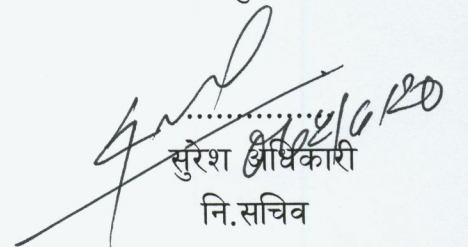 ...............
सुरेश अधिकारी
नि.सचिव